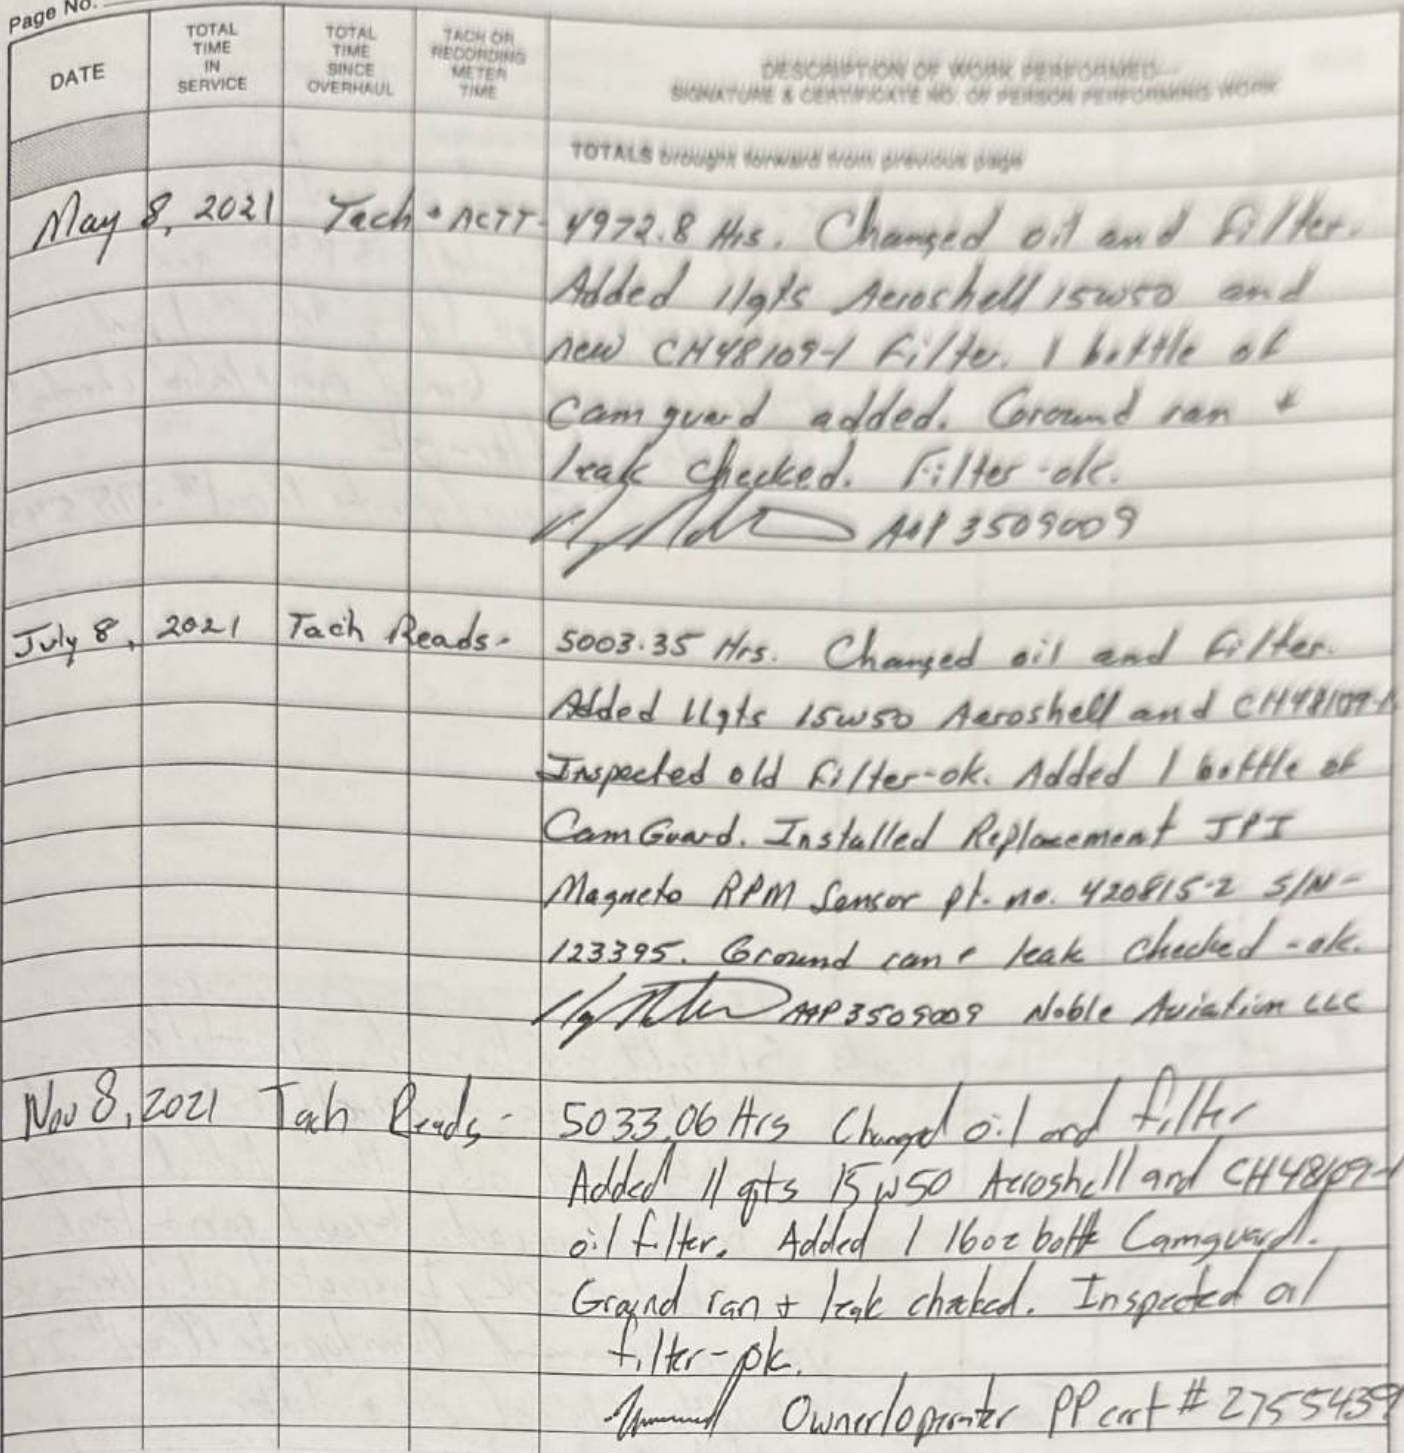 Page No.
DATE
TOTAL TIME IN SERVICE
TOTAL TIME SINCE OVERHAUL
TACH OR RECORDING METER TIME
DESCRIPTION OF WORK PERFORMED
SIGNATURE & CERTIFICATE NO. OF PERSON PERFORMING WORK
TOTALS brought forward from previous page
May 8, 2021 Tach • ACTT- 4972.8 Hrs. Changed oil and filter.
Added 11qts Aeroshell 15w50 and
new CH48109-1 Filter. 1 bottle of
Camguard added. Ground ran +
leak checked. Filter-ok.
A&P 3509009
July 8, 2021 Tach Reads- 5003.35 Hrs. Changed oil and filter.
Added 11qts 15w50 Aeroshell and CH48109-1
Inspected old filter-ok. Added 1 bottle of
CamGuard. Installed Replacement JPI
Magneto RPM Sensor pt. no. 420815-2 S/N-
123395. Ground ran & leak checked -ok.
A&P 3509009 Noble Aviation LLC
Nov 8, 2021 Tach Reads- 5033.06 Hrs Changed oil and filter
Added 11 qts 15w50 Aeroshell and CH48109-1
oil filter. Added 1 16oz bottle Camguard.
Ground ran + leak checked. Inspected oil
filter-ok.
Owner/operater PP cert # 2755439